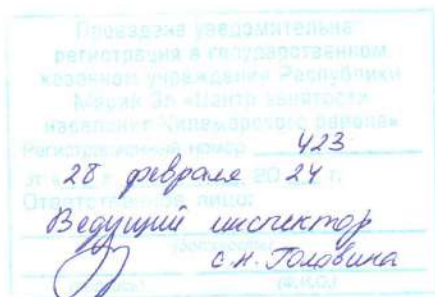 Проведена уведомительная
регистрация в государственном
казенном учреждении Республики
Марий Эл «Центр занятости
населения Килемарского района»
Регистрационный номер 423
от 28 февраля 2024 г.
Ответственное лицо:
Ведущий инспектор
(должность)
С.Н. Головина
(подпись) (Ф.И.О.)